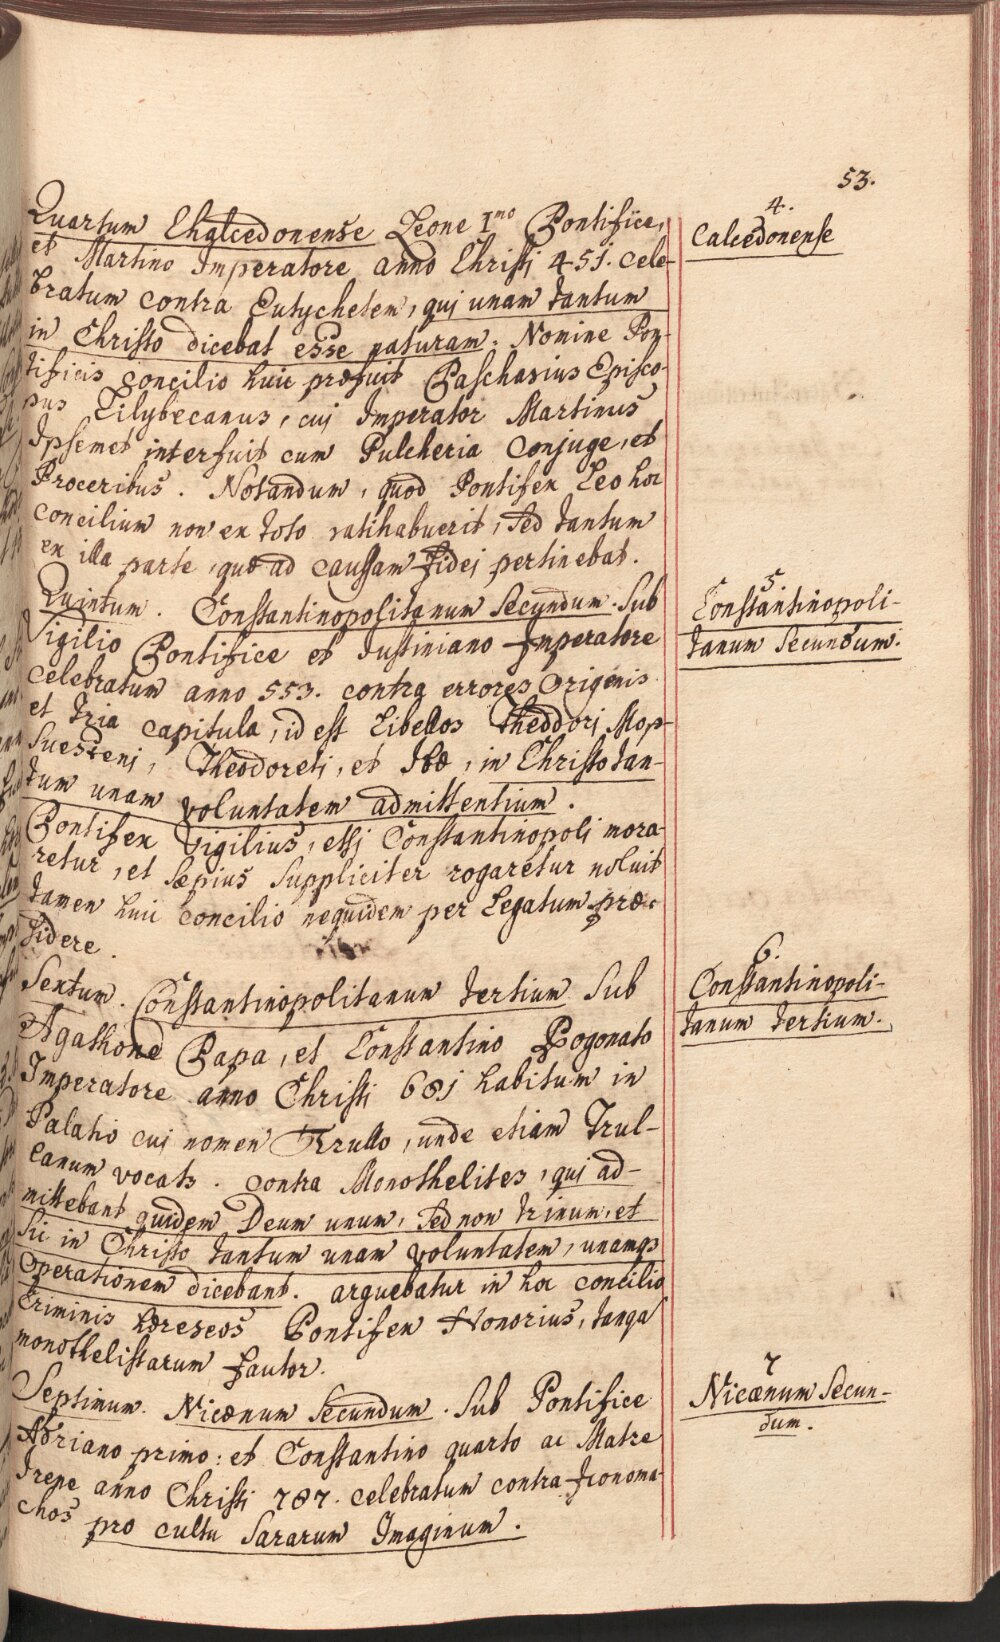 53.
4.
Calcedonense
Quartum Chalcedonense Leone Imo Pontifice,
et Martino Imperatore anno Christi 451. cele-
bratum contra Eutychetem, qui unam tantum
in Christo dicebat esse naturam. Nomine Pon-
tificis concilio huic præfuit Paschasius Episco-
pus Lilybecanus, cui Imperator Martinus
Ipsemet interfuit cum Pulcheria Conjuge, et
Proceribus. Notandum, quod Pontifex Leo hoc
concilium non ex toto ratihabuerit, sed tantum
ex illa parte, quæ ad causam Fidei pertinebat.
5.
Constantinopoli-
tanum Secundum.
Quintum. Constantinopolitanum Secundum. Sub
Vigilio Pontifice et Justiniano Imperatore
celebratum anno 553. contra errores Origenis
et tria capitula, id est Libellos Theodori Mop-
suesteni, Theodoreti, et Ibæ, in Christo tan-
tum unam voluntatem admittentium.
Pontifex Vigilius, etsi Constantinopoli mora-
retur, et sæpius suppliciter rogaretur noluit
tamen huic concilio nequidem per Legatum præ-
sidere.
6.
Constantinopoli-
tanum tertium.
Sextum. Constantinopolitanum tertium Sub
Agathone Papa, et Constantino Pogonato
Imperatore anno Christi 681 habitum in
Palatio cui nomen Trullo, unde etiam Trul-
lanum vocatr. contra Monothelites, qui ad-
mittebant quidem Deum unum, sed non trinum, et
sic in Christo tantum unam voluntatem, unamq3
operationem dicebant. arguebatur in hoc concilio
criminis hæreseos Pontifex Honorius, tanqa
monothelistarum fautor.
7
Nicænum Secun-
dum.
Septimum. Nicænum Secundum. Sub Pontifice
Adriano primo: et Constantino quarto ac Matre
Irene anno Christi 787. celebratum contra Iconoma-
chos pro cultu Sararum Imaginum.